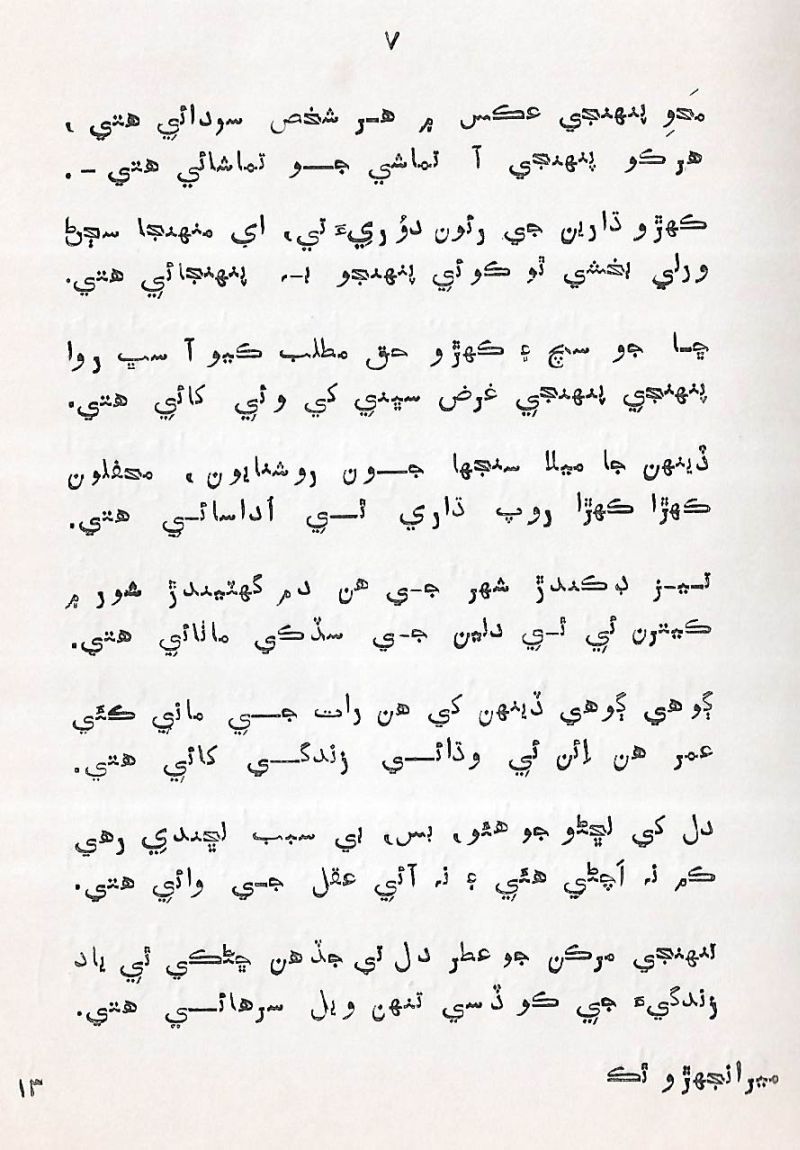 ۷
مَحوِ پنهنجي عڪس ۾ هر شخص سودائي هتي ،
هرڪو پنهنجي آ تماشي جو تماشائي هتي -.
ڪهڙو ڌارين جي رئون دؤريءَ تي، اي منهنجا سڄڻ
ورلي بخشي ٿو ڪوئي پنهنجو بہ پنهنجائي هتي.
ڇا جو سچ ۽ ڪهڙو حق مطلب ڪيو آ سڀ روا
پنهنجي پنهنجي غرض سڀني کي وئي کائي هتي.
ڏينهن جا ميلا سنجها جون روشنايون ، محفلون
ڪهڙا ڪهڙا روپ ڌاري ٿي اُداسائي هتي.
تيز ڊڪندڙ شهر جي هن دم گهٽيندڙ شور ۾
ڪيترن ئي ئي دلين جي سڏڪي ماٺائي هتي.
ڳوهي ڳوهي ڏينهن کي هن رات جي ماني ڪئي
عمر هن اِئن ئي وڌائي زندگي کائي هتي.
دل کي لڇڻو جو هئو، بس، بي سبب لڇندي رهي
ڪم نہ اَچڻي هئي ۽ نہ آئي عقل جي وائي هتي.
تنهنجي مرڪن جو عطر دل تي جڏهن ڇڻڪي ٿي ياد
زندگيءَ جي ڪو ڏسي تنهن ويل سرهائي هتي.
ميرانجهڙو ٿڪ
۱۳